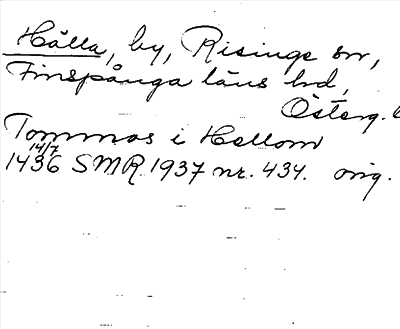 Hälla, by, Risinge sn,
Finspånga läns hd,
Österg.
Tommos i Hellom
14/7
1436 SMR 1937 nr. 434. orig.